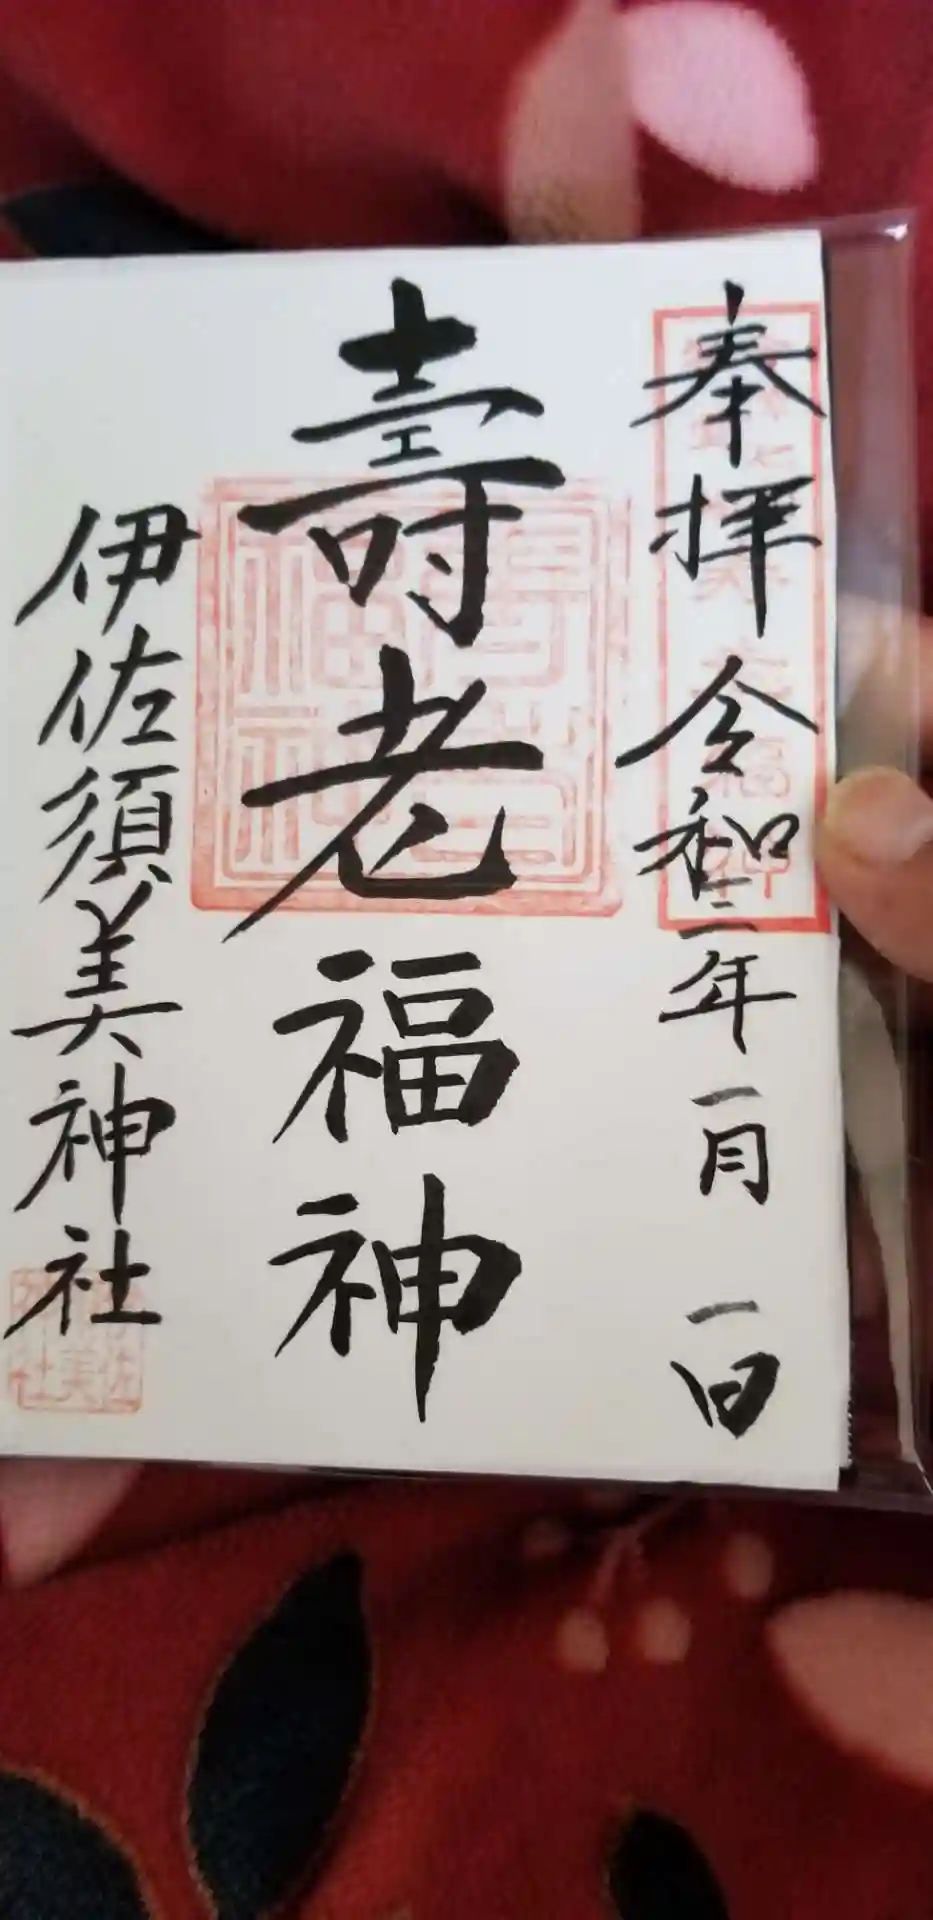 奉拝 令和二年 一月 一日
壽老福神
伊佐須美神社